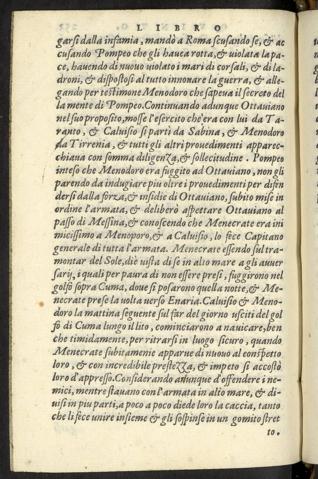 LIBRO
garsi dalla infamia, mandò a Roma scusando se, & ac
cusando Pompeo che gli hauea rotta, & uiolata la pa-
ce, hauendo di nuouo uiolato i mari di corsali, & di la-
droni, & dispostosi al tutto innouare la guerra, & alle-
gando per testimone Menodoro che sapeua il secreto del
la mente di Pompeo. Continuando adunque Ottauiano
nel suo proposito, mosse l'esercito ch'era con lui da Ta-
ranto, & Caluisio si partì da Sabina, & Menodoro
da Tirrenia, & tutti gli altri prouedimenti apparec-
chiaua con somma diligenza, & sollecitudine. Pompeo
inteso che Menodoro era fuggito ad Ottauiano, non gli
parendo da indugiare piu oltre i prouedimenti per difen
dersi dalla forza, & insidie di Ottauiano, subito mise in
ordine l'armata, & deliberò aspettare Ottauiano al
passo di Messina, & conoscendo che Menecrate era ini
micissimo a Menoporo, & a Caluisio, lo fece Capitano
generale di tutta l'armata. Menecrate essendo sul tra-
montar del Sole, diè uista di se in alto mare a gli auuer
sarij, i quali per paura di non essere presi, fuggirono nel
golfo sopra Cuma, doue si posarono quella notte, & Me-
necrate prese la uolta uerso Enaria. Caluisio & Meno-
doro la mattina seguente sul far del giorno usciti del gol
fo di Cuma lungo il lito, cominciarono a nauicare, ben
che timidamente, per ritrarsi in luogo sicuro, quando
Menecrate subitamente apparue di nuouo al conspetto
loro, & con incredibile prestezza, & impeto si accostò
loro d'appresso. Considerando adunque d'offendere i ne-
mici, mentre stauano con l'armata in alto mare, & di-
uisi in piu parti, a poco a poco diede loro la caccia, tanto
che li fece unire insieme & gli sospinse in un gomito stret
to.